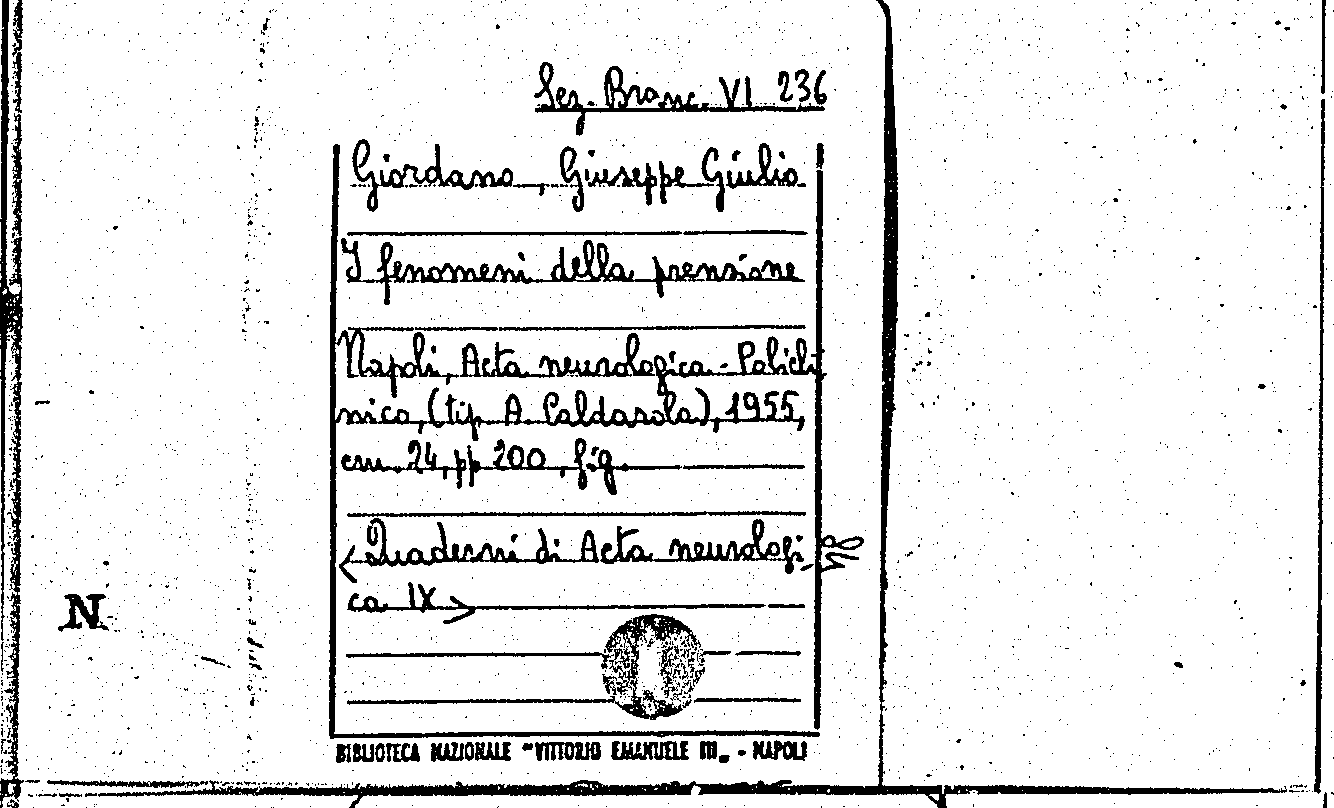 Sez. Branc. VI 236
Giordano, Giuseppe Giulio
I fenomeni della prensione
Napoli, Acta neurologica - Policli
nico, (tip. A. Caldarola), 1955,
cm. 24, pp 200, fig.
<Quaderni di Acta neurologi-
ca IX>
N
BIBLIOTECA NAZIONALE "VITTORIO EMANUELE III„ - NAPOLI